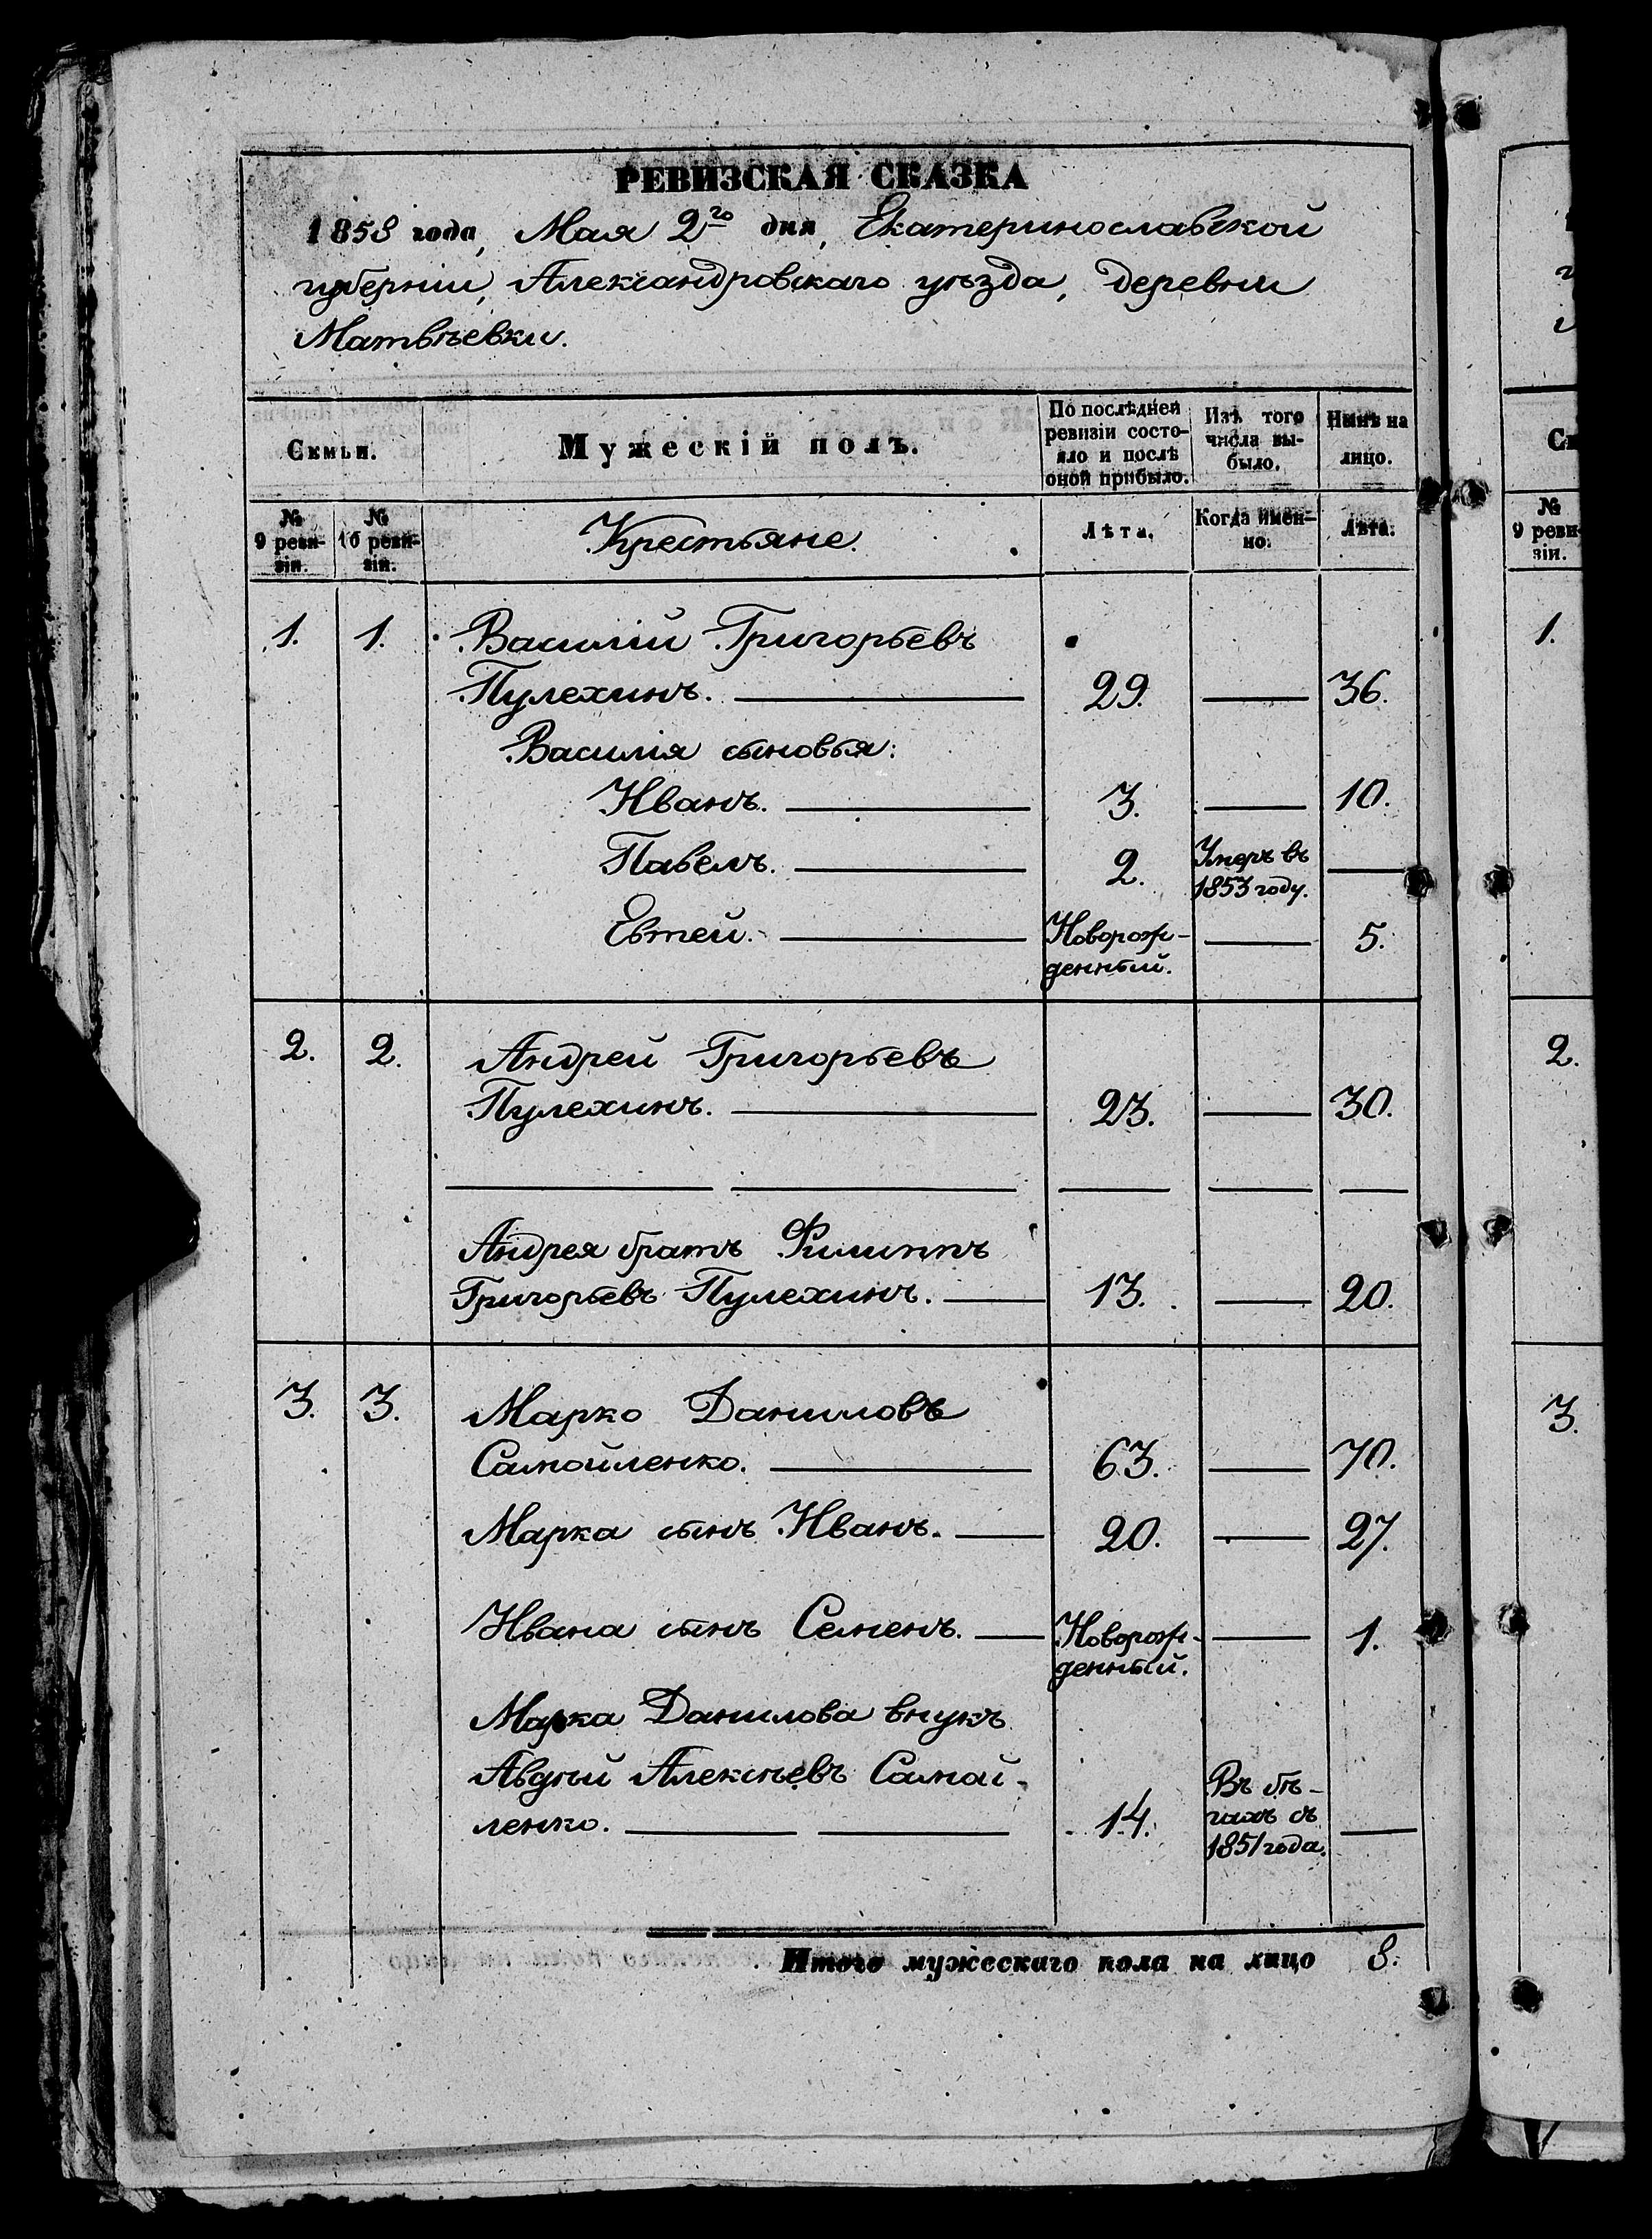 РЕВИЗСКАЯ СКАЗКА
1858 года, Мая 2го дня, Екатеринославской
губерніи, Александровскаго уѣзда, деревни
Матвѣевки.
Семьи.
Мужескій полъ.
По послѣдней
ревизіи состо-
яло и послѣ
оной прибыло.
Изъ того
числа вы-
было.
Нынѣ на
лицо.
№
9 реви-
зіи.
№
10 реви-
зіи.
Крестьяне.
Лѣта.
Когда имен-
но.
Лѣта.
1. 1. Василій Григорьевъ
Пулехинъ. 29. 36.
Василія сыновья:
Иванъ. 3. 10.
Павелъ. 2. Умеръ въ
1853 году.
Евтей. Новорож-
денный. 5.
2. 2. Андрей Григорьевъ
Пулехинъ. 23. 30.
Андрея братъ Филиппъ
Григорьевъ Пулехинъ. 13. 20.
3. 3. Марко Даниловъ
Самойленко. 63. 70.
Марка сынъ Иванъ. 20. 27.
Ивана сынъ Семенъ. Новорож-
денный. 1.
Марка Данилова внукъ
Авдѣй Алексѣевъ Самой-
ленко. 14. Въ бѣ-
гахъ съ
1851 года.
Итого мужескаго пола на лицо 8.
№
9 реви-
зіи.
1.
2.
3.